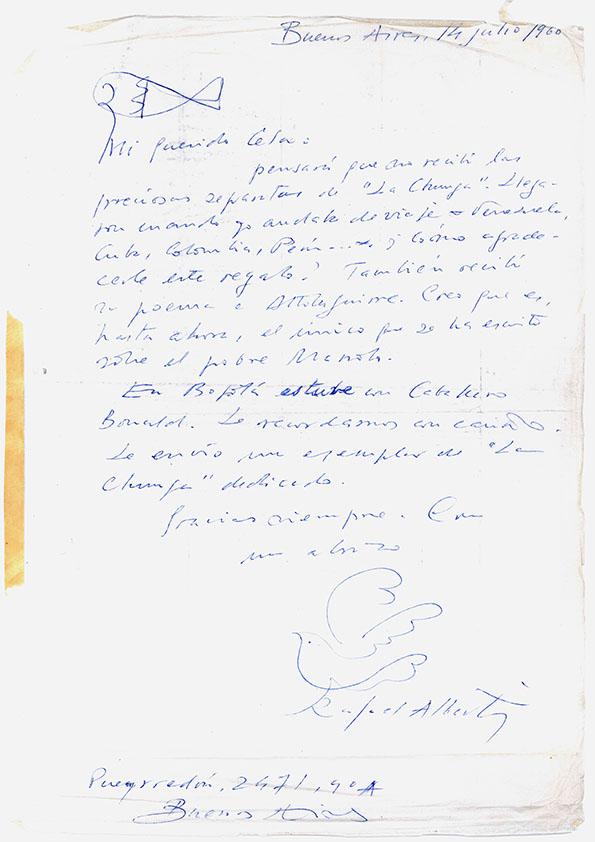 Buenos Aires, 14 julio 1960
Mi querido César:
pensará que no recibí las
preciosas separatas de "La Chunga". Llega-
ron cuando yo andaba de viaje - Venezuela,
Cuba, Colombia, Perú... y ¿cómo agrade-
cerle este regalo? También recibí
su poema a Altolaguirre. Creo que es,
hasta ahora, el único que se ha escrito
sobre el pobre Manolo.
En Bogotá estuve con Caballero
Bonald. Le recordamos con cariño.
Le envío un ejemplar de "La
Chunga" dedicado.
Gracias siempre. Con
un abrazo
Rafael Alberti
Pueyrredón, 2471, 9º A
Buenos Aires